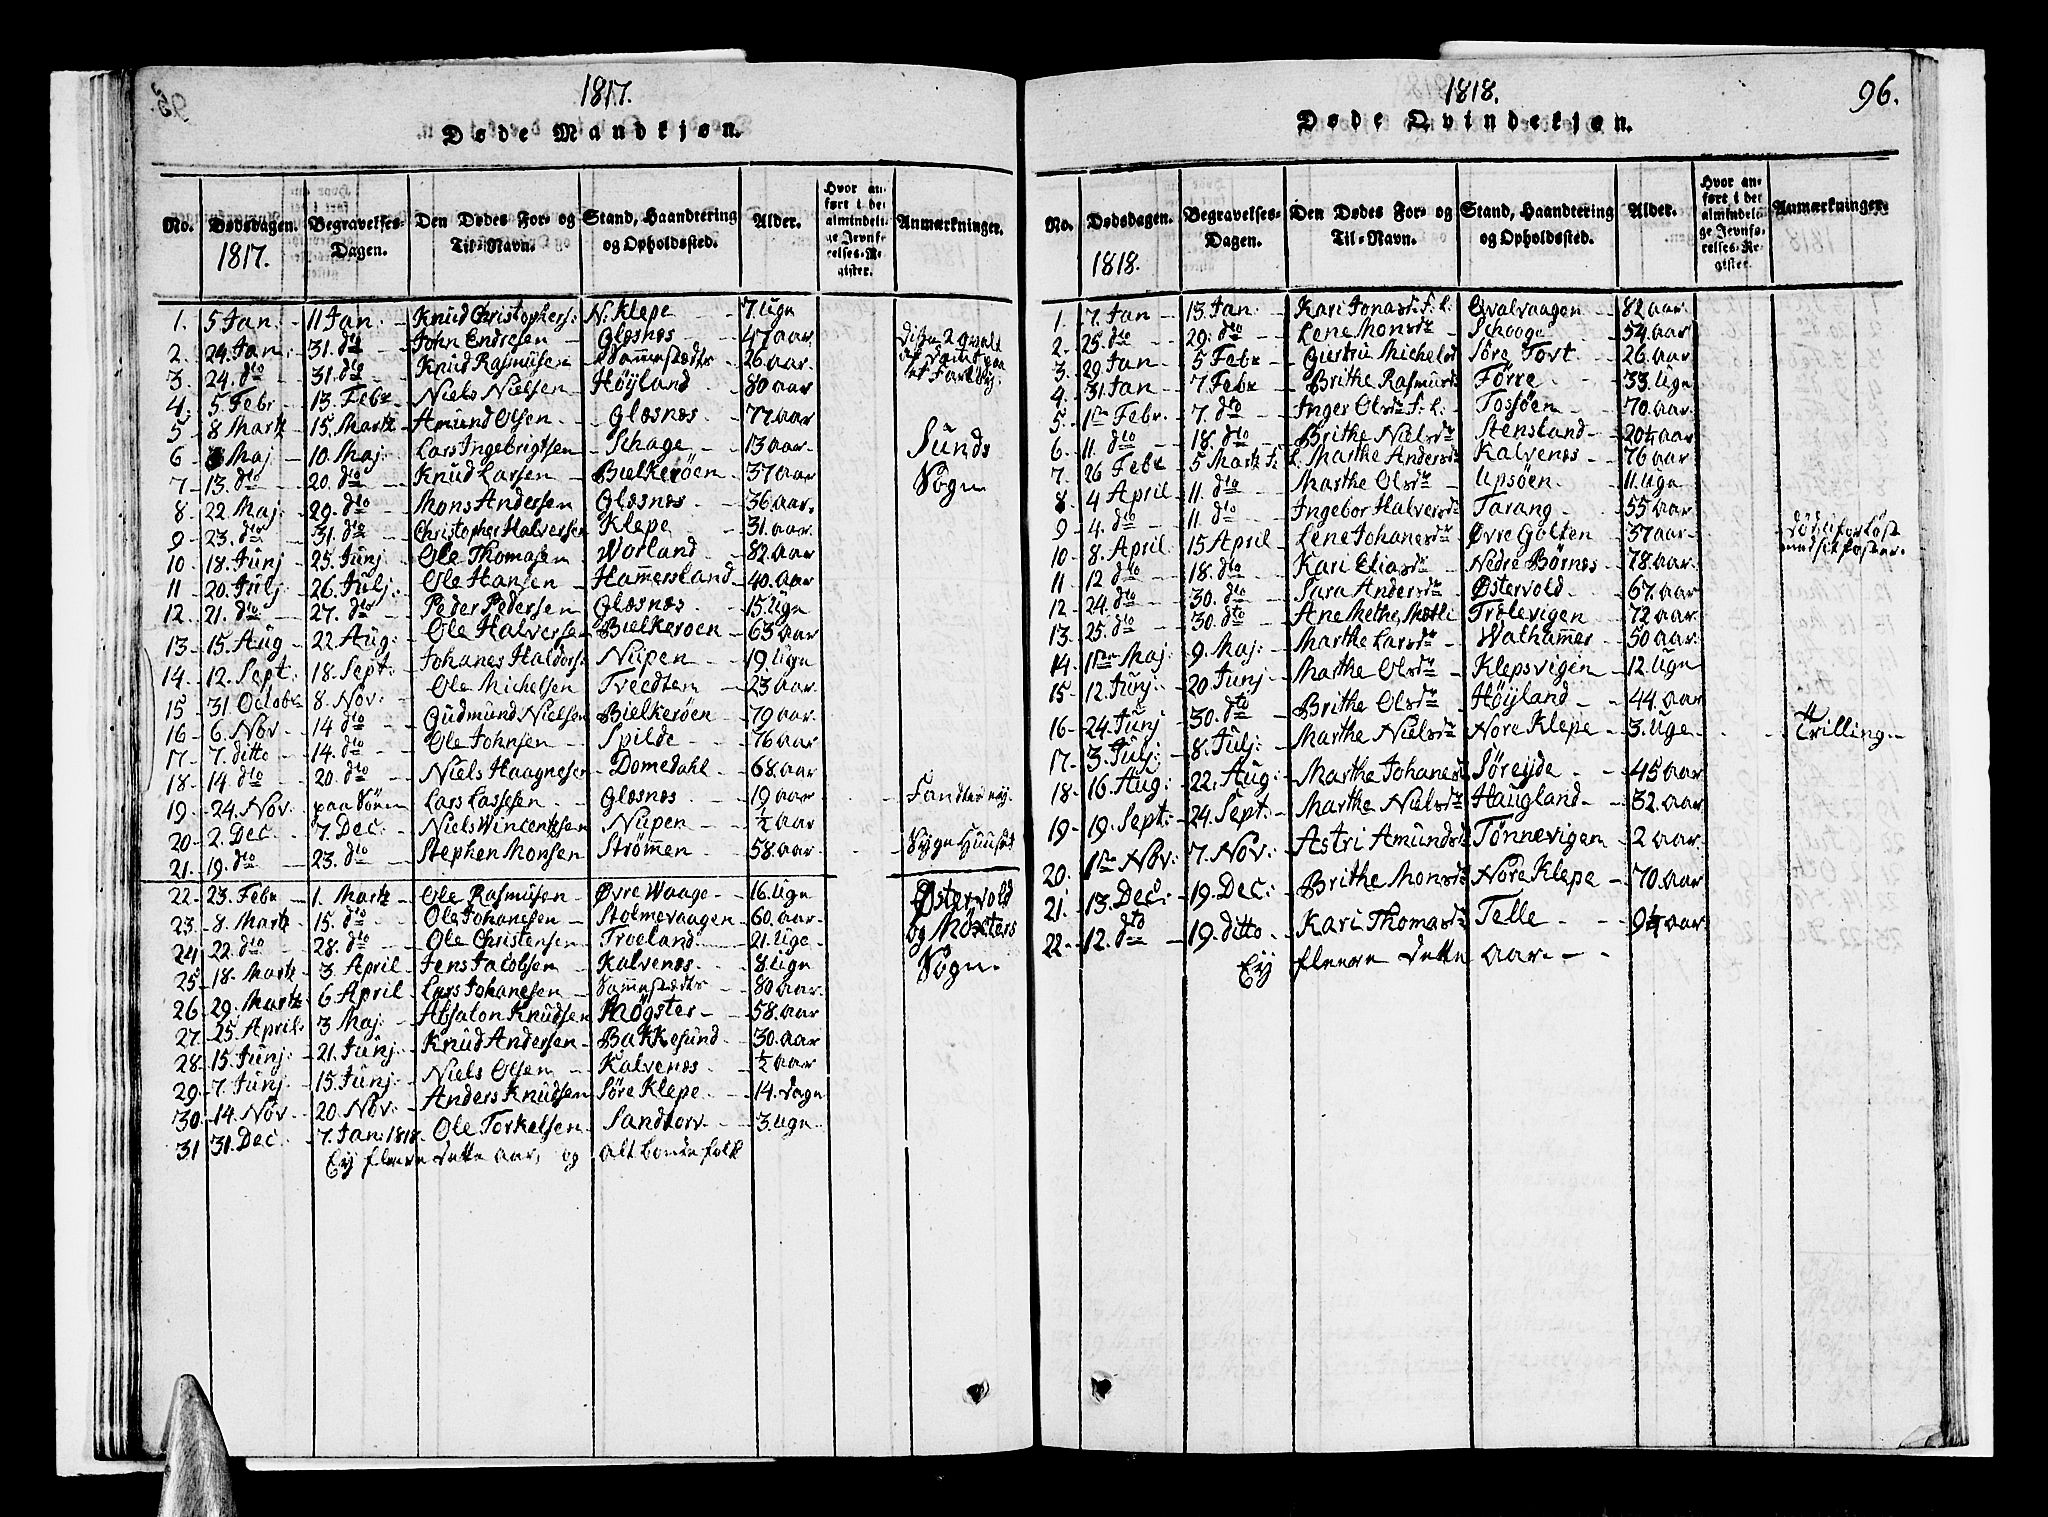 1817.
Døde Mandkjøn.
No. Dødsdagen. 1817. Begravelses-Dagen. Den Dødes For- og Til-Navn. Stand, Haandtering og Opholdssted. Alder. Hvor anført i de almindelige Jevnførelses-Register. Anmærkninger.
1. 5 Jan. 11 Jan. Knud Christophers: N. Klepe 7. Ugn
2. 24. Jan. 31. dto John Endresen Glæsnæs 47 aar
3. 24. dto 31. dto Knud Rasmusen 26 aar
4. 5. Febr 13. Febr Niels Nielsen Höyland 80 aar
5 8 Martz 15. Martz Amund Olsen Glæsnæs 77 aar
6 Maj 10. Maj: Lars Ingebrigtsen Schage 13 aar Sunds
7 13. dto 20. dto Knud Larsen Bielkeröen 37 aar Sogn
8 22 Maj: 29. dto Mons Andersen Glæsnæs 36 aar.
9 23. dto 31. dto Christopher Halversen Klepe 31. aar
10 18 Junj 25. Junj Ole Thomasen Worland 82. aar
11 20. Julj 26. Julj: Ole Hansen Hammersland 40. aar
12. 21. dto 27. dto Peder Pedersen Glæsnæs 15. Ugn
13 15. Aug 22 Aug: Ole Halversen Bielkeröen 63 aar
14. 12. Sept: 18. Sept: Johanes Haldors: Nupen 19. Ugn
15 31 Octobr 8. Nov: Ole Michelsen Tveedtem 23 aar
16 6. Nov 14 dto Gudmund Nielsen Bielkeröen 79 aar
17 7. ditto 14. dto Ole Johnsen Spilde 76 aar
18 14. dto 20. dto Niels Haagnesen Domedahl 68. aar
19 24. Nov. paa Söen Lars Lassesen Glæsnæs 19 aar
20 2. Dec 7. Dec: Niels Wincentzsen Nupen ½ aar
21. 19. dto 23. dto Stephen Monsen Strömen 58. aar
22. 23. Febr 1. Martz Ole Rasmusen Øvre Waage 16. Ugn Østervold
23. 8. Martz 15. dto Ole Johanesen Stolmevaagen 60. aar og Møxters
24 22. dto 28. dto Ole Christensen Troeland 21. Uge Sogn.
25 18. Martz 3. April Jens Jacobsen Kalvenæs 8. Ugn
26 29. Martz 6 April Lars Johanesen 80 aar
27. 25. April. 3 Maj: Absalon Knudsen Møgster 58. aar
28 15. Junj: 21. Junj: Knud Andersen Bakkesund 30. aar
29 7. Junj. 15. Junj: Niels Olsen Kalvenæs ½ aar
30. 14. Nov. 20. Nov: Anders Knudsen Søre Klepe 14. dage
31 31. Dec. 7. Jan: 1818. Ole Torkelsen Sandtorv 3. Ugn
Ej fleere dette aar, og alt bonde folk
1818. 96.
Døde Qvindekjøn.
No. Dødsdagen. 1818. Begravelses-Dagen. Den Dødes For- og Til-Navn. Stand, Haandtering og Opholdssted. Alder. Hvor anført i de almindelige Jevnførelses-Register. Anmærkninger.
1. 7. Jan 13. Jan Kari Jonasd: f: l: Qvalvaagen 82 aar
2. 25. dto 29. dto Lene Monsdr Schooge 54. aar
3. 29. Jan 5 Febr Giertru Michelsd Søre Tovt 26. aar
4. 31. Jan 7 Febr Brithe Rasmusd Förre 33. Ugn
5. 1ste Febr. 7. dto Inger Olsd: f: l: Tossöen 70. aar
6. 11. dto 18. dto Brithe Nielsdr Stensland 20½ aar
7. 26 Febr 5 Martz f: l. Marthe Andersd Kalvenæs 76 aar
8 4 April 11. dto Marthe Olsdr Upsöen 11. Ugn
9 4. dto 11. dto Ingebor Halversd Tarang 55 aar
10 8. April 15 April Lene Johanesdr Øvre Golten 37 aar
11 12 dto 18. dto Kari Eliasdr Nedre Børnes 78. aar
12 24. dto 30. dto Sara Andersdr Østervold 67. aar
13. 25. dto 30. dto Ane Methe Trolevigen 72 aar
14. 1ste Maj 9. Maj: Marthe Larsdr Walhammer 50 aar
15 12 Junj: 20 Junj Marthe Olsdr Klepsvigen 12. Ugn
16 24 Junj 30. dto Brithe Olsdr Höyland 44. aar
17 3. Julj 8. Julj: Marthe Nielsdr Nore Klepe 3. Uge Trilling.
18 16 Aug: 22. Aug: Marthe Johanesd Søreide 45 aar
19 19. Sept: 24. Sept: Marthe Nielsdr Haugland 32. aar
20. 1ste Nov: 7. Nov: Astri Amundsd Tønnevigen 2 aar
21. 13. Dec: 19. Dec: Brithe Monsd Nore Klepe 70. aar
22. 12. dto 19. ditto Kari Thomasdr Telle 9½ aar
Ej fleere dette aar.